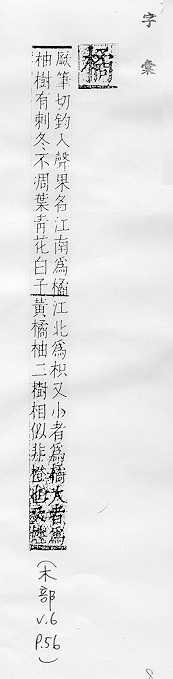 字彙
橘
厥筆切鈞入聲果名江南爲橘江北爲枳又小者爲橘大者爲
柚樹有刺冬不凋葉青花白子黃橘柚二樹相似非橙也
(木部 v.6 P.56)